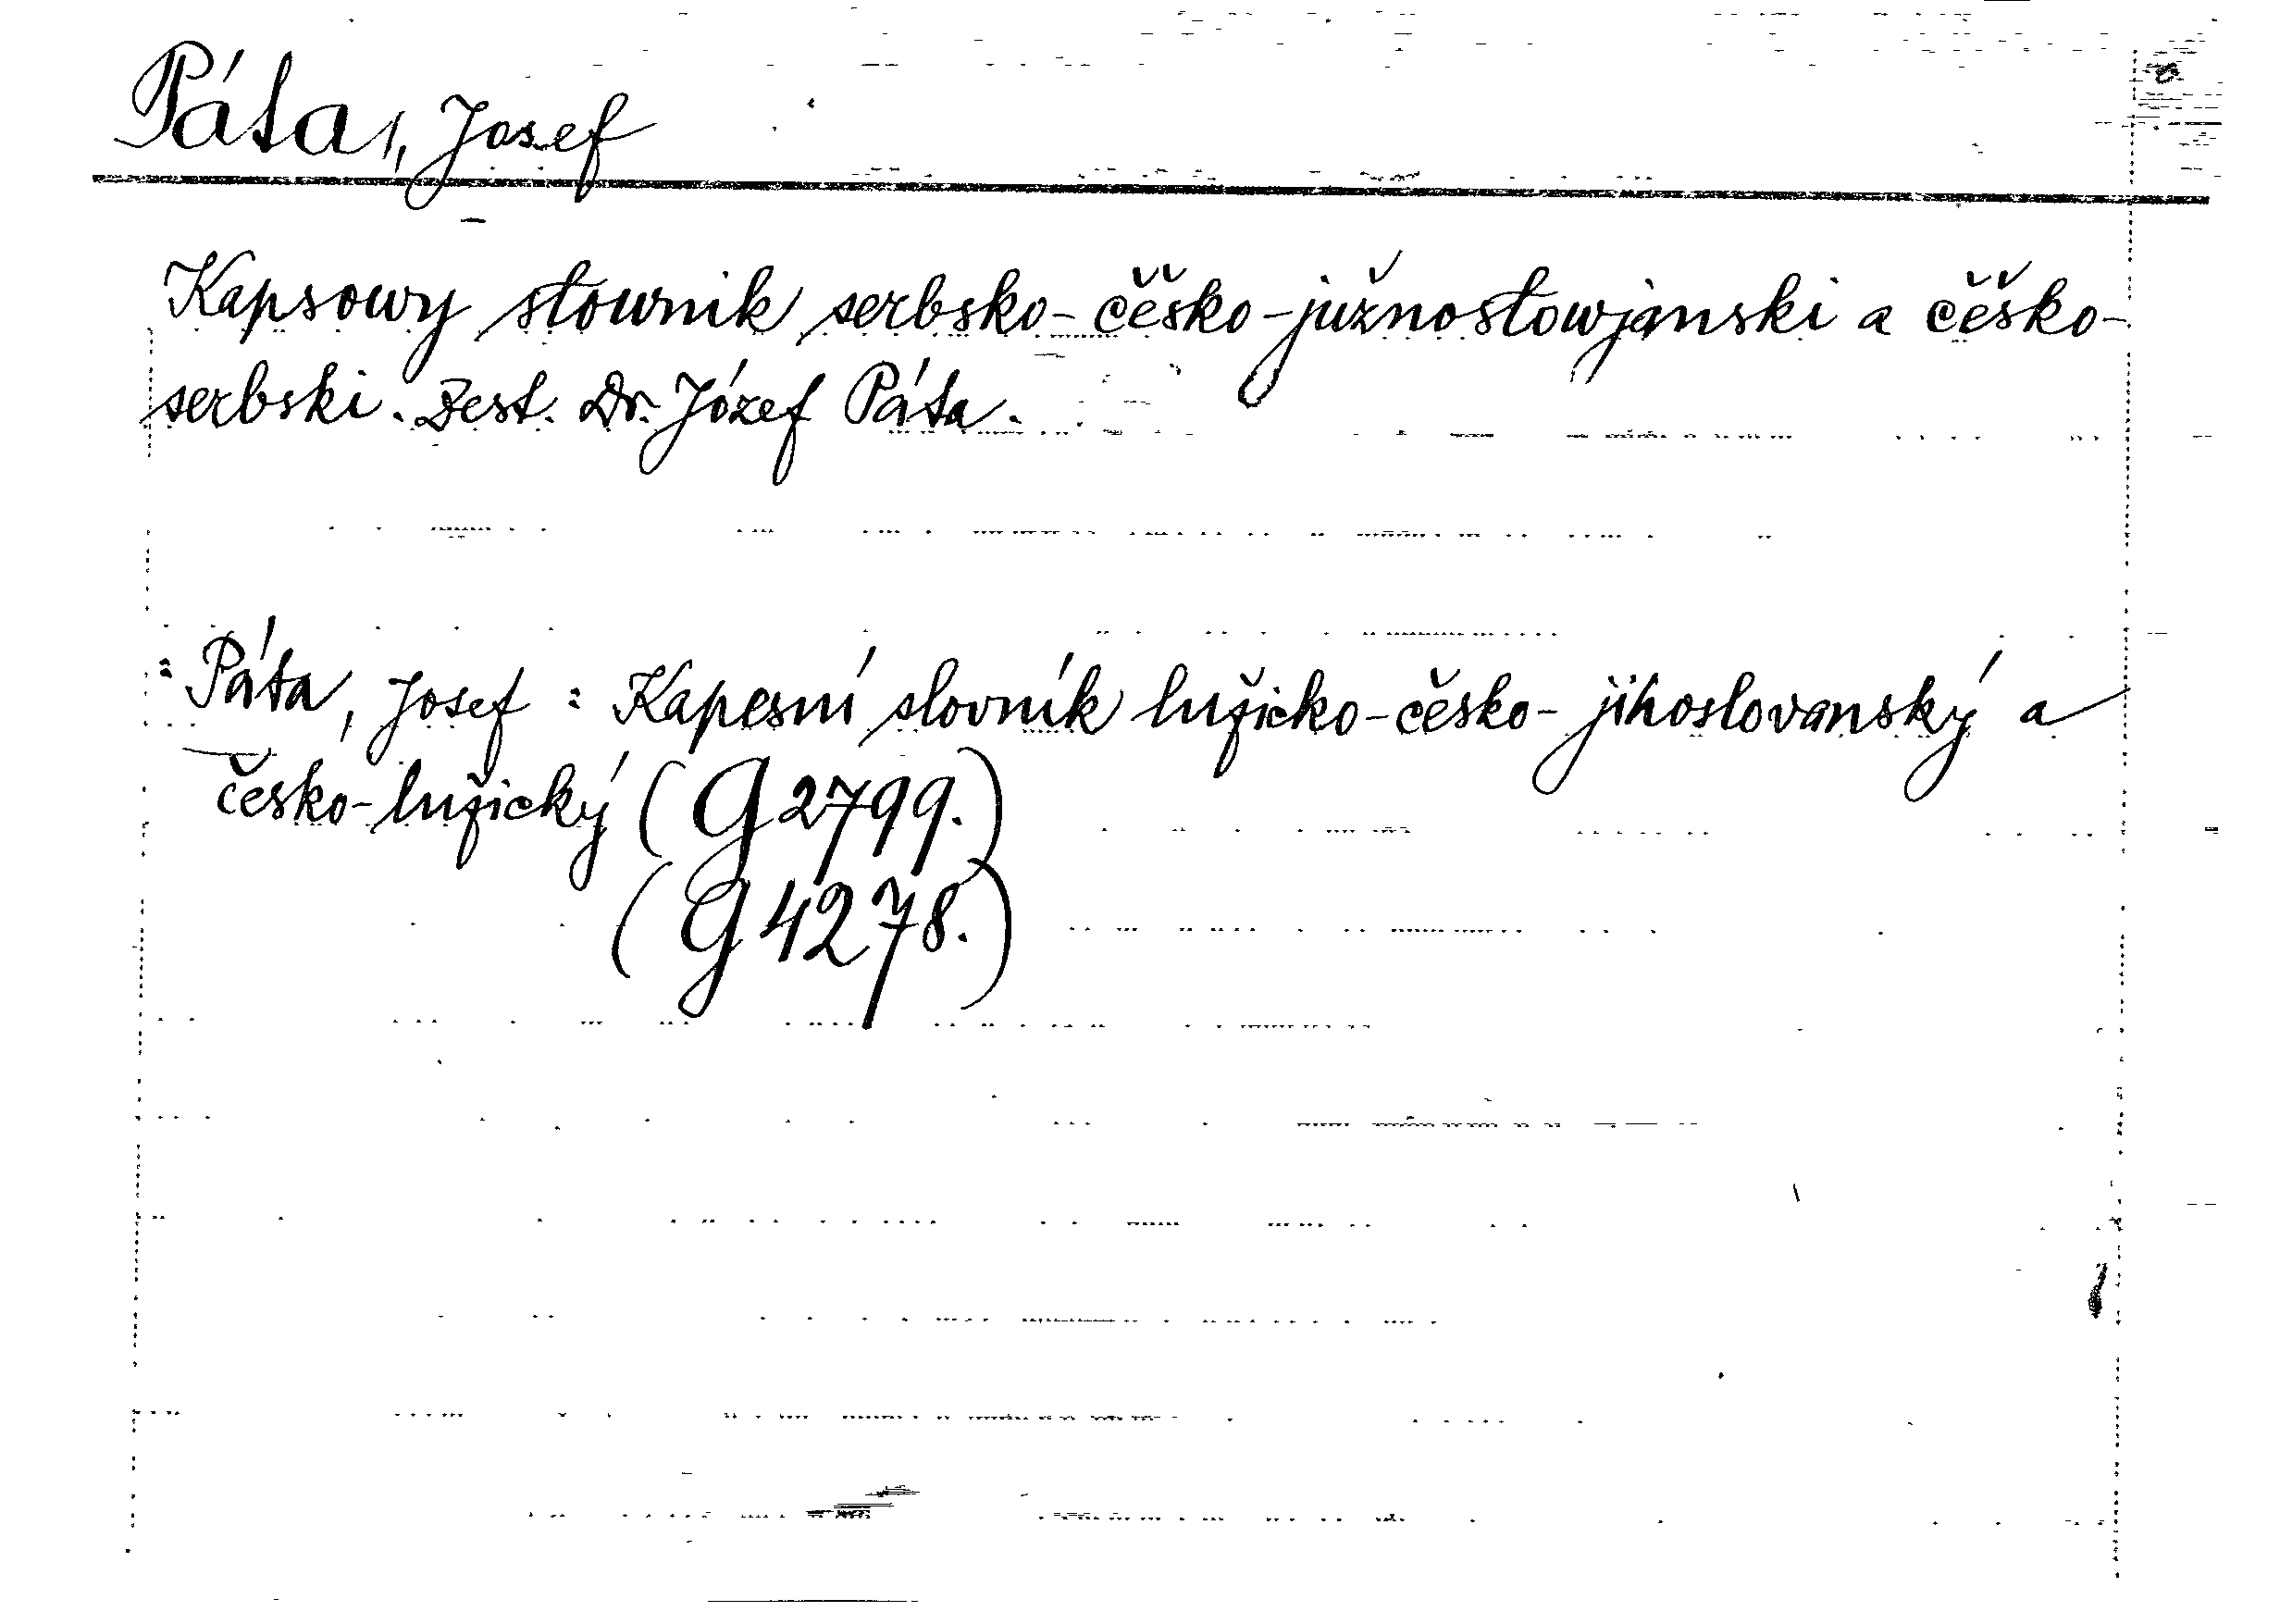 Páta, Josef
Kapsowy słownik serbsko-čěsko-južnosłowjanski a čěsko-
serbski. Zest. Dr. Józef Páta.
= Páta, Josef : Kapesní slovník lužicko-česko-jihoslovanský a
česko-lužický (G 2799.)
(G 4278.)